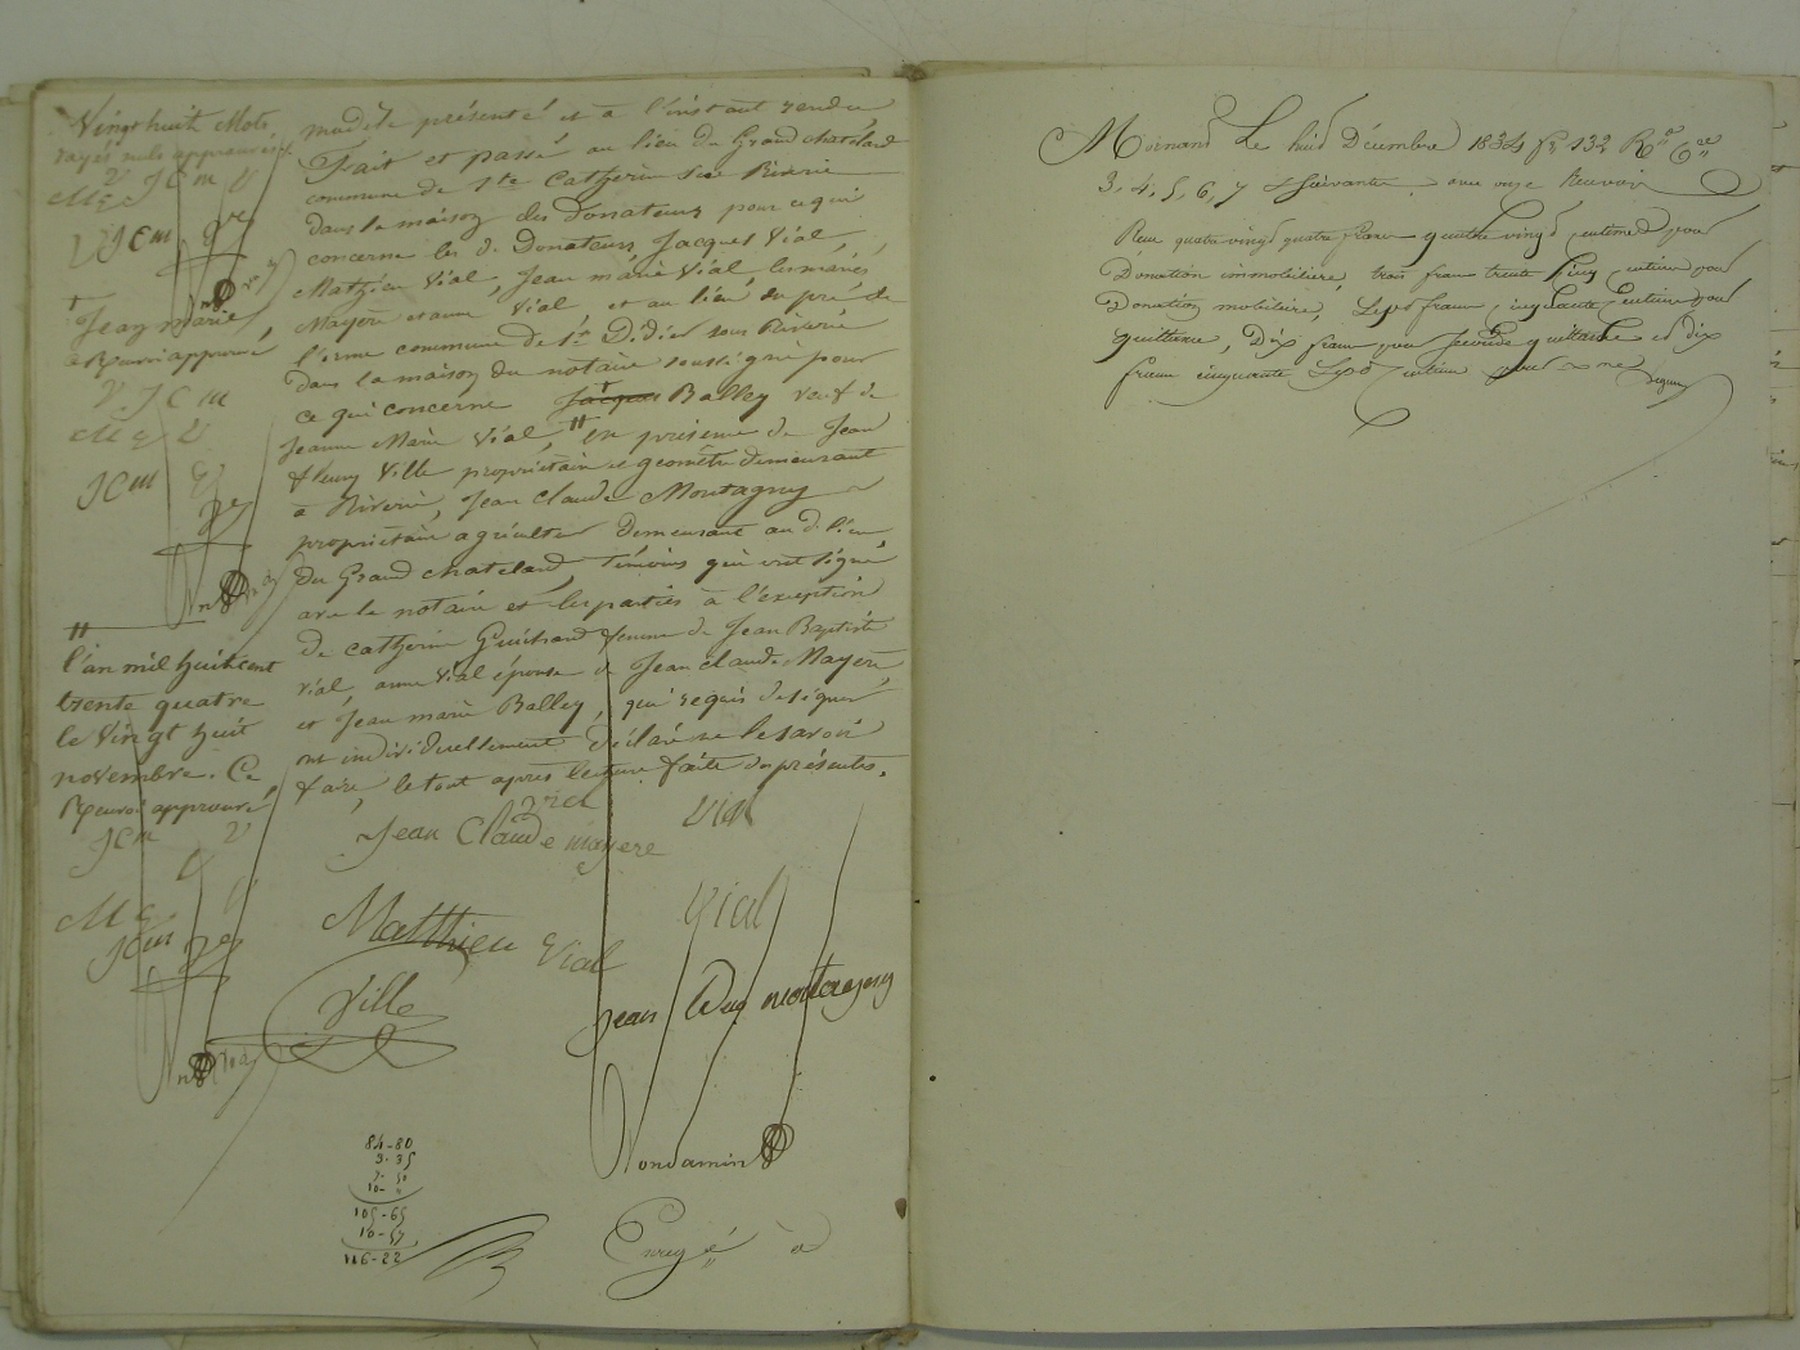 Vingt huit Mots
rayés nuls approuvés
V JCM V
JCM
†
Jean marie
Renvoi approuvé
V J C M
JCM
††
l'an mil huit cent
trente quatre
le Vingt huit
novembre. Ce
Renvoi approuvé
JCM V
JCM
modité présenté et à l'instant rendu
Fait et passé au lieu du Grand chatelard
commune de Ste Catherine sous Riverie
dans la maison des Donateurs pour ce qui
concerne les d. Donateurs Jacques Vial,
Mathieu Vial, Jean márie Vial, les mariés
Mayere et anne Vial et au lieu du pré de
l'orme commune de St Didier sous Riverie
dans la maison du notaire soussigné pour
ce qui concerne Jacques † Balley veuf de
Jeanne Marie Vial, †† en présence de Jean
fleury Ville propriétaire et géomètre demeurant
à Riverie, Jean Claude Montagny
propriétaire agriculteur demeurant au d. lieu
du Grand chatelard, témoins qui ont signé
avec le notaire et les parties à l'exception
de catherine Guichard femme de Jean Baptiste
vial, anne Vial épouse de Jean claude Mayere,
et Jean marie Balley, qui requis de signer
ont individuellement déclaré ne le savoir
faire, le tout après lecture faite des présentes.
Vial Vial
Jean Claude mayere
Vial
Matthieu Vial
Ville
Jean Montagny
Condamin
84-80
3-35
7-50
10- "
105-65
10-57
116-22
Enregé à
Mornand Le huit Décembre 1834 fo 132 Ro Cse
3, 4, 5, 6, 7 & suivantes, avec onze Renvois
Recu quatre vingt quatre francs quatre vingt centimes pour
Donation immobiliere, trois francs trente cinq centimes pour
Donation mobiliaire, Sept francs cinquante Centimes pour
quittance, Dix francs pour seconde quittance et dix
francs cinquante Sept centimes pour